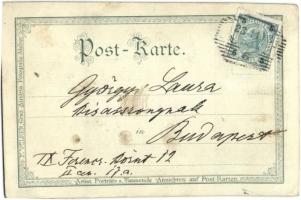 Post-Karte.
György Laura
kisasszonynak
in
Budapest
IX Ferenc körút 12
II em. 17a.
Artist. Porträts u. Tausende Ansichten auf Post-Karten.